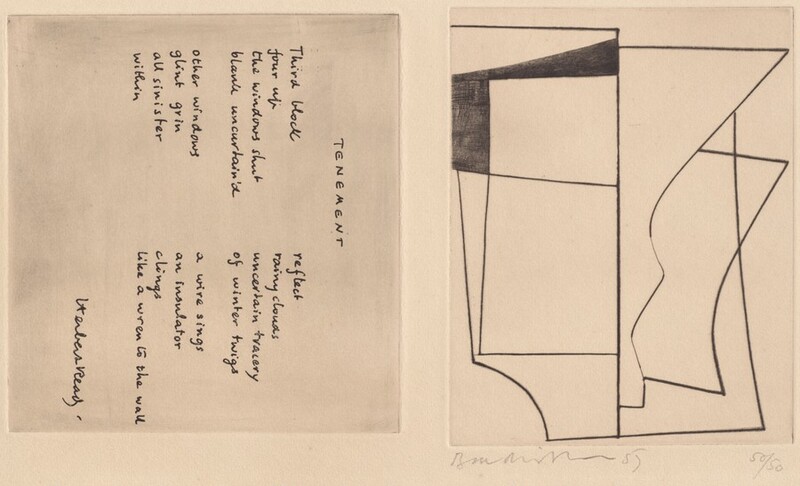 TENEMENT
Third block
four up
the windows shut
blank uncurtain'd
other windows
glint grin
all sinister
within
reflect
rainy clouds
uncertain tracery
of winter twigs
a wire sings
an insulator
clings
like a wren to the wall
Herbert Read.
Ben Nicholson
50/50